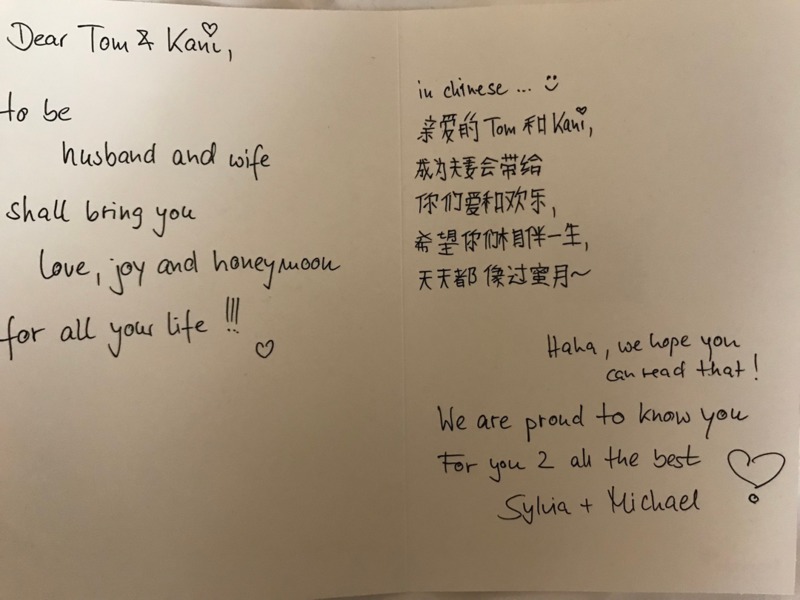 Dear Tom & Kani,
to be
husband and wife
shall bring you
love, joy and honeymoon
for all your life !!!
in chinese ...
亲爱的 Tom 和 Kani,
成为夫妻会带给
你们爱和欢乐,
希望你们相伴一生,
天天都像过蜜月~
Haha, we hope you
can read that!
We are proud to know you
For you 2 all the best
Sylvia + Michael